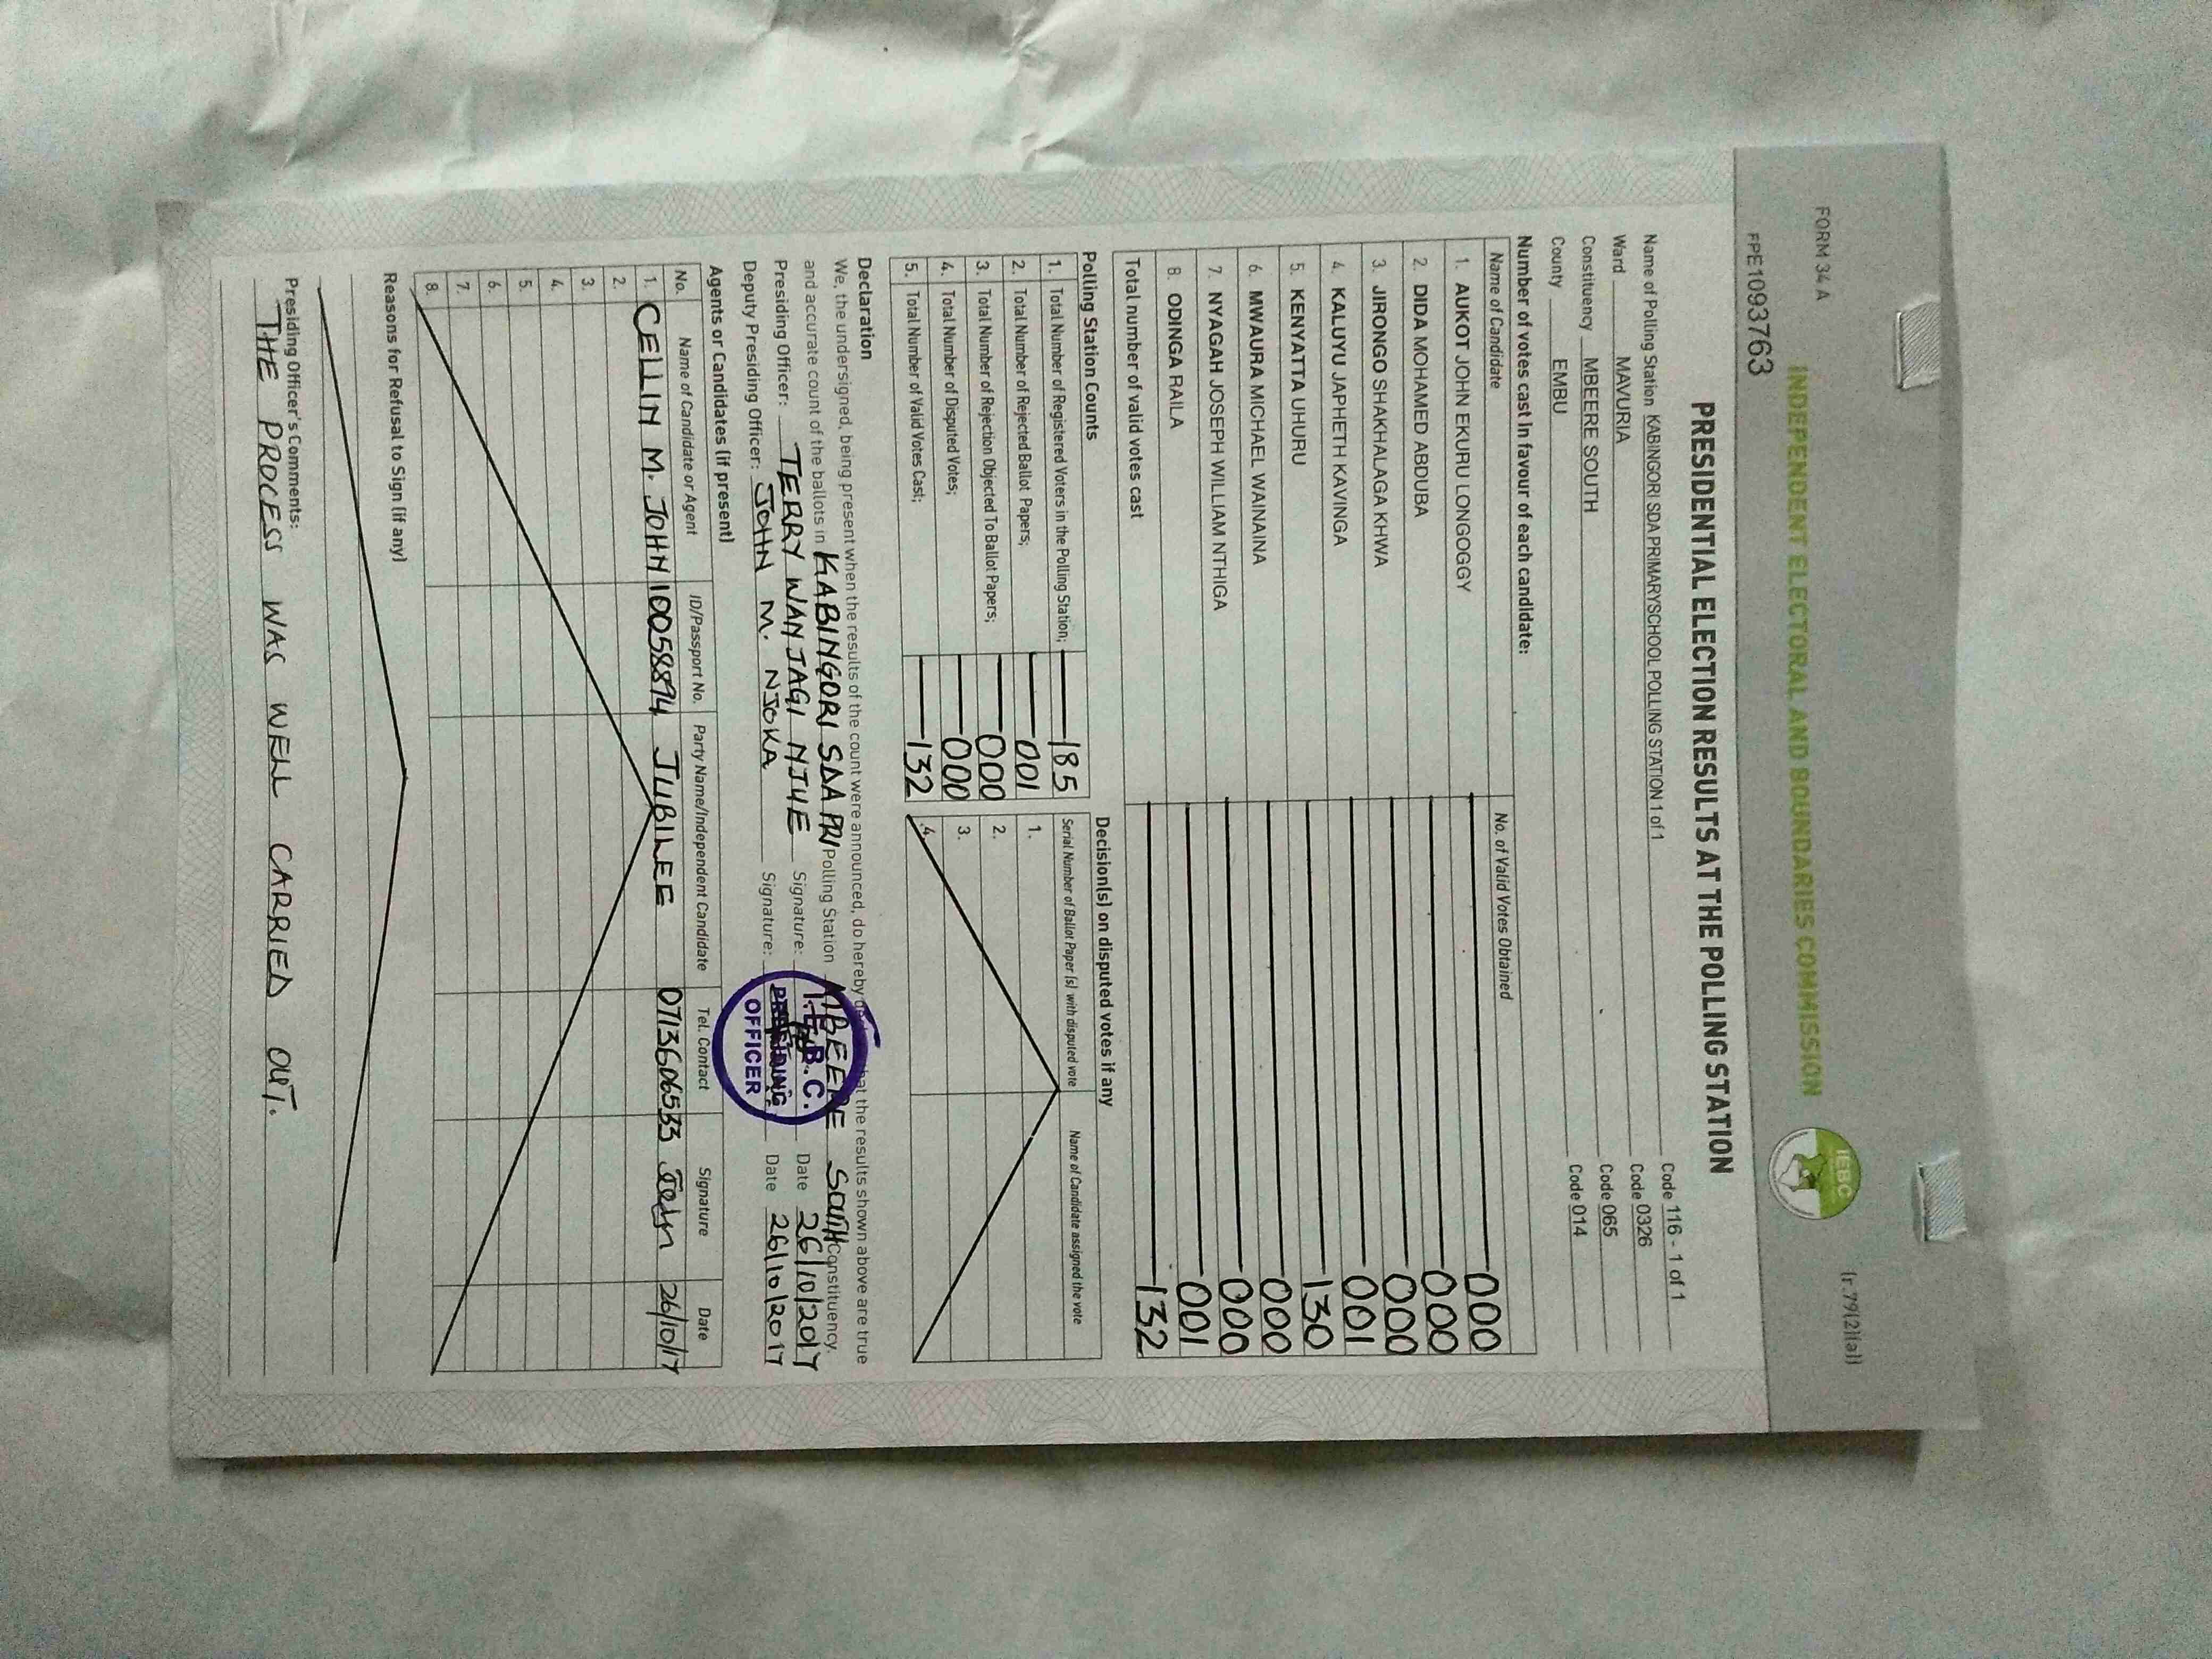 FORM 34 A
(r.79(2)(a))
INDEPENDENT ELECTORAL AND BOUNDARIES COMMISSION
IEBC
FPE1093763
PRESIDENTIAL ELECTION RESULTS AT THE POLLING STATION
Name of Polling Station KABINGORI SDA PRIMARYSCHOOL POLLING STATION 1 of 1 Code 116 - 1 of 1
Ward MAVURIA Code 0326
Constituency MBEERE SOUTH Code 065
County EMBU Code 014
Number of votes cast in favour of each candidate:
Name of Candidate No. of Valid Votes Obtained
1. AUKOT JOHN EKURU LONGOGGY 000
2. DIDA MOHAMED ABDUBA 000
3. JIRONGO SHAKHALAGA KHWA 000
4. KALUYU JAPHETH KAVINGA 001
5. KENYATTA UHURU 130
6. MWAURA MICHAEL WAINAINA 000
7. NYAGAH JOSEPH WILLIAM NTHIGA 000
8. ODINGA RAILA 001
Total number of valid votes cast 132
Polling Station Counts
1. Total Number of Registered Voters in the Polling Station; 185
2. Total Number of Rejected Ballot Papers; 001
3. Total Number of Rejection Objected To Ballot Papers; 000
4. Total Number of Disputed Votes; 000
5. Total Number of Valid Votes Cast; 132
Decision(s) on disputed votes if any
Serial Number of Ballot Paper (s) with disputed vote Name of Candidate assigned the vote
1.
2.
3.
4.
Declaration
We, the undersigned, being present when the results of the count were announced, do hereby that the results shown above are true
and accurate count of the ballots in KABINGORI SDA PRI Polling Station MBEERE SOUTH Constituency.
Presiding Officer: TERRY WANJAGI NJUE Signature: Date 26/10/2017
Deputy Presiding Officer: JOHN M. NJOKA Signature: Date 26/10/2017
I.E.B.C.
PRESIDING
OFFICER
Agents or Candidates (if present)
No. Name of Candidate or Agent ID/Passport No. Party Name/Independent Candidate Tel. Contact Signature Date
1. CELLIN M. JOHN 10058894 JUBILEE 0713606533 26/10/17
2.
3.
4.
5.
6.
7.
8.
Reasons for Refusal to Sign (if any)
Presiding Officer's Comments:
THE PROCESS WAS WELL CARRIED OUT.